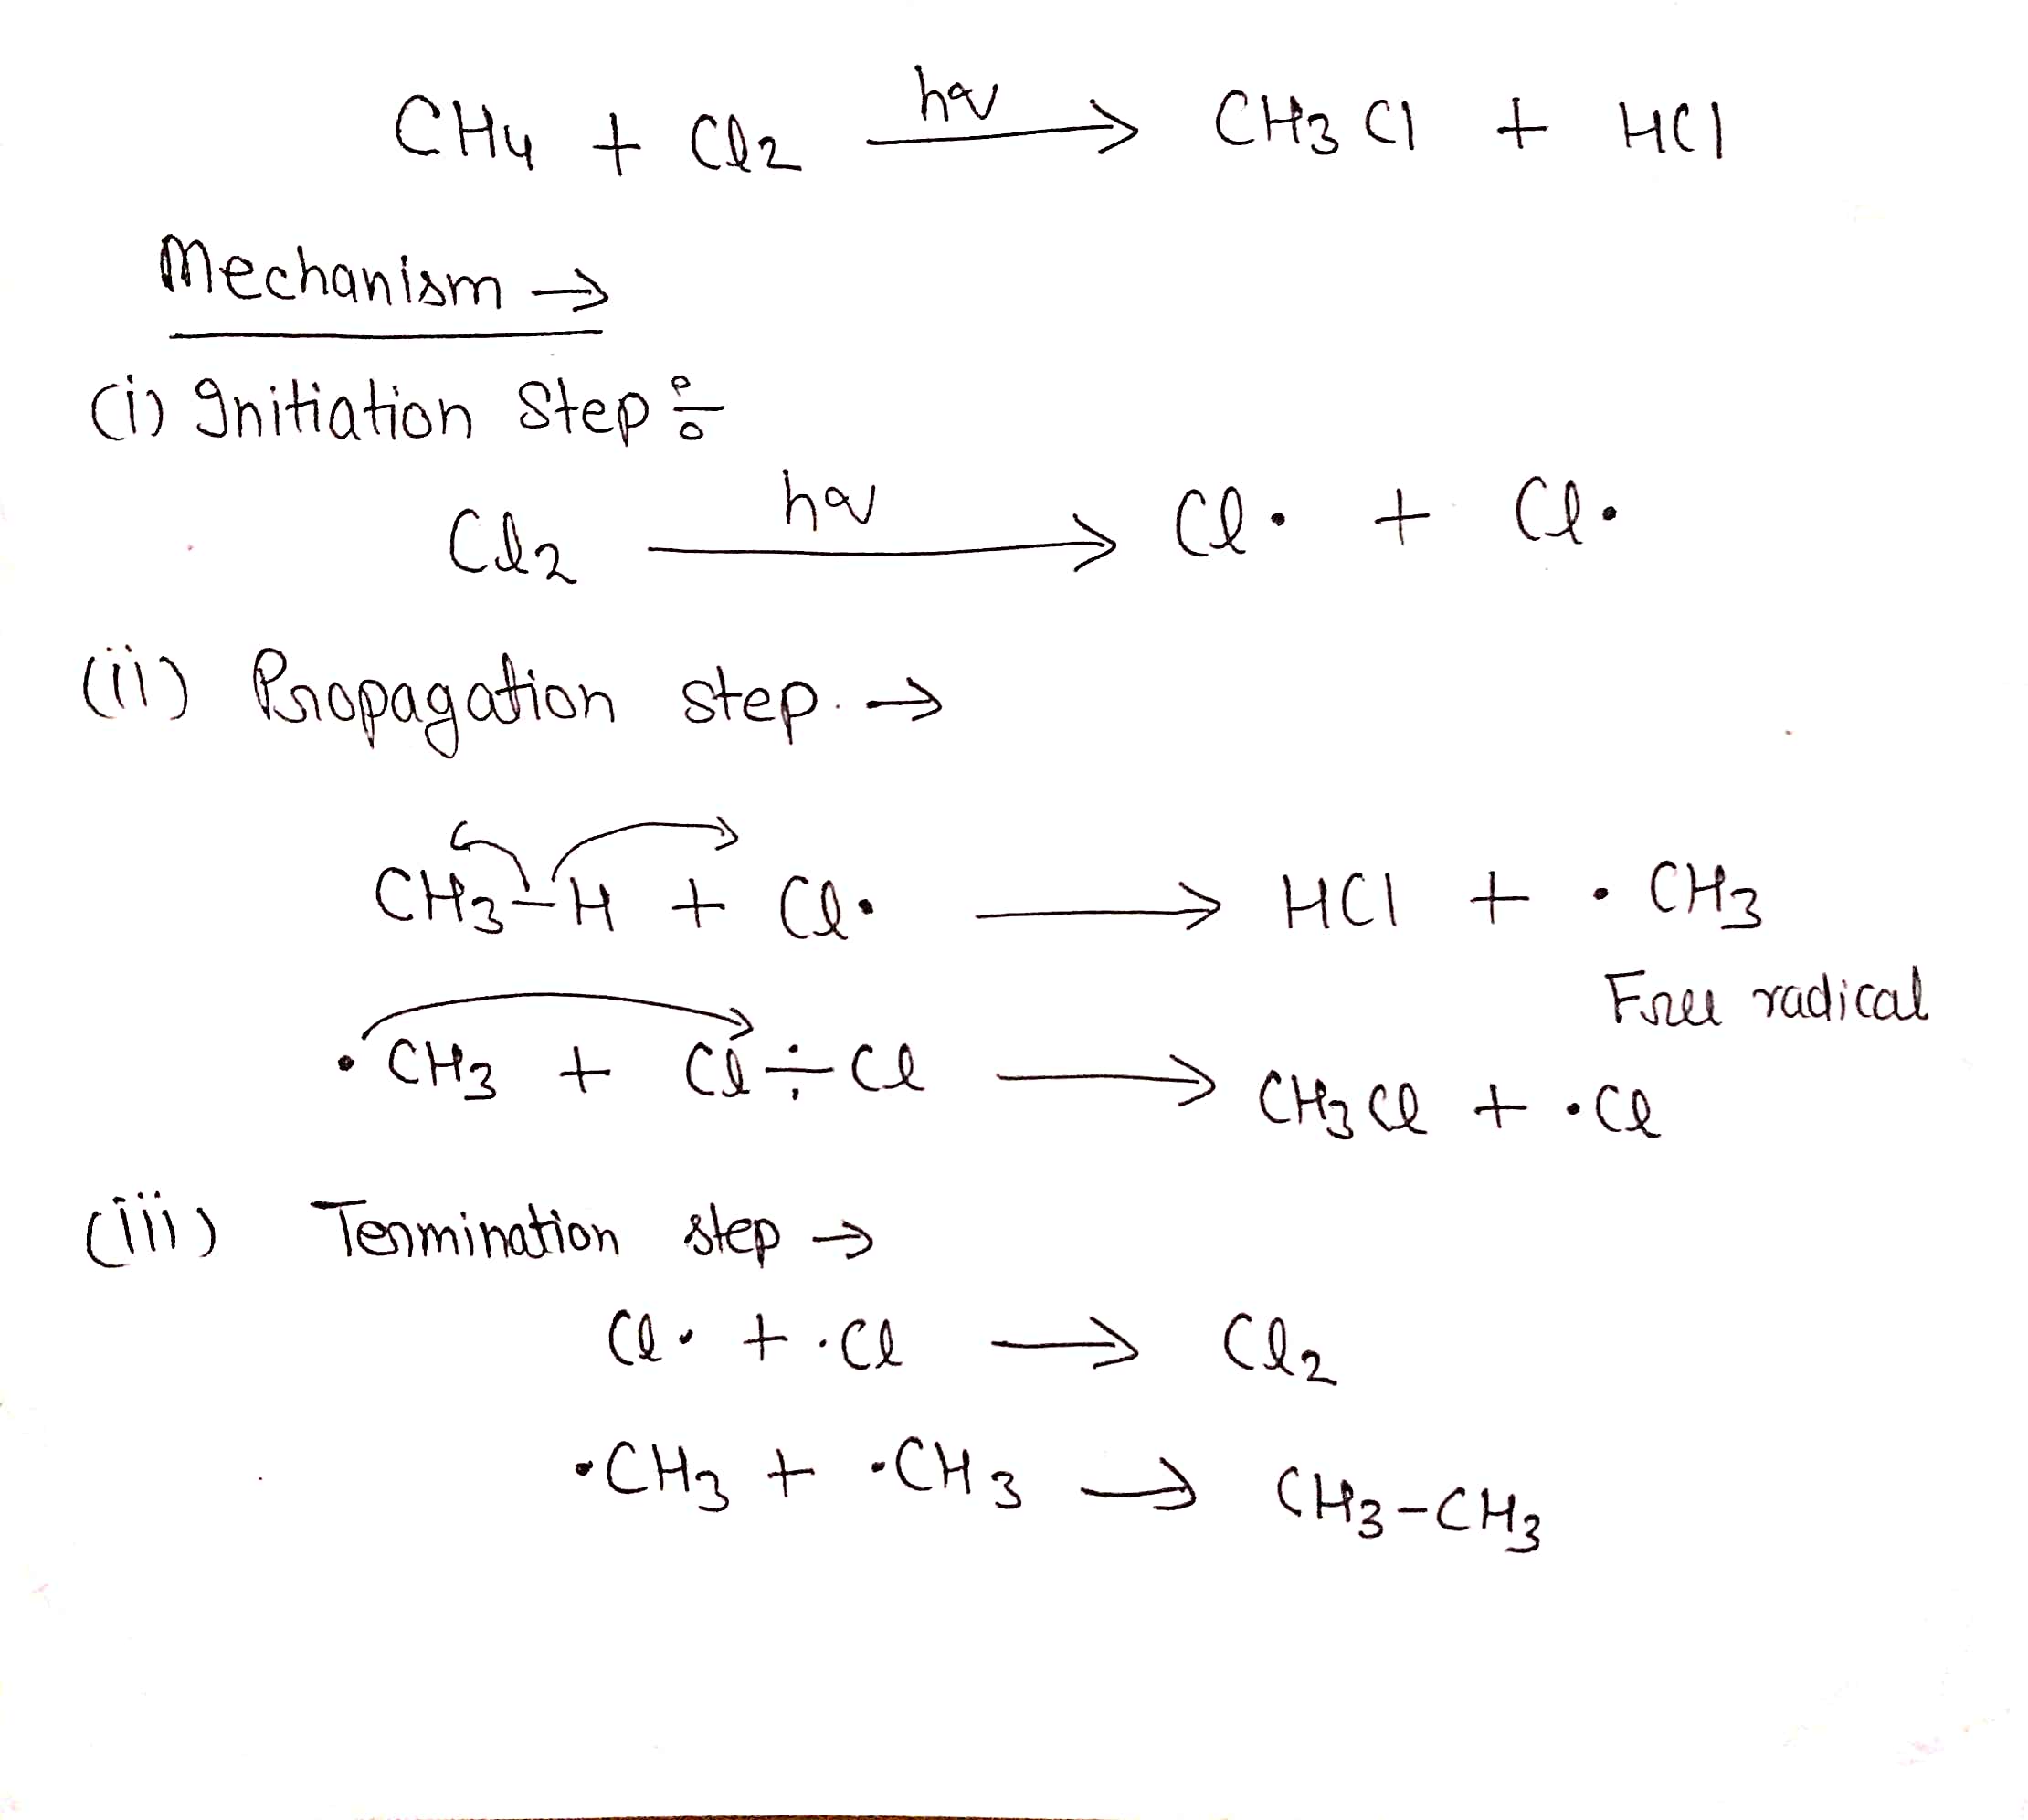 CH4 + Cl2 hν → CH3Cl + HCl
Mechanism →
(i) Initiation Step ÷
Cl2 hν → Cl• + Cl•
(ii) Propagation step. →
CH3-H + Cl• → HCl + •CH3
Free radical
•CH3 + Cl÷Cl → CH3Cl + •Cl
(iii) Termination step →
Cl• + •Cl → Cl2
•CH3 + •CH3 → CH3-CH3